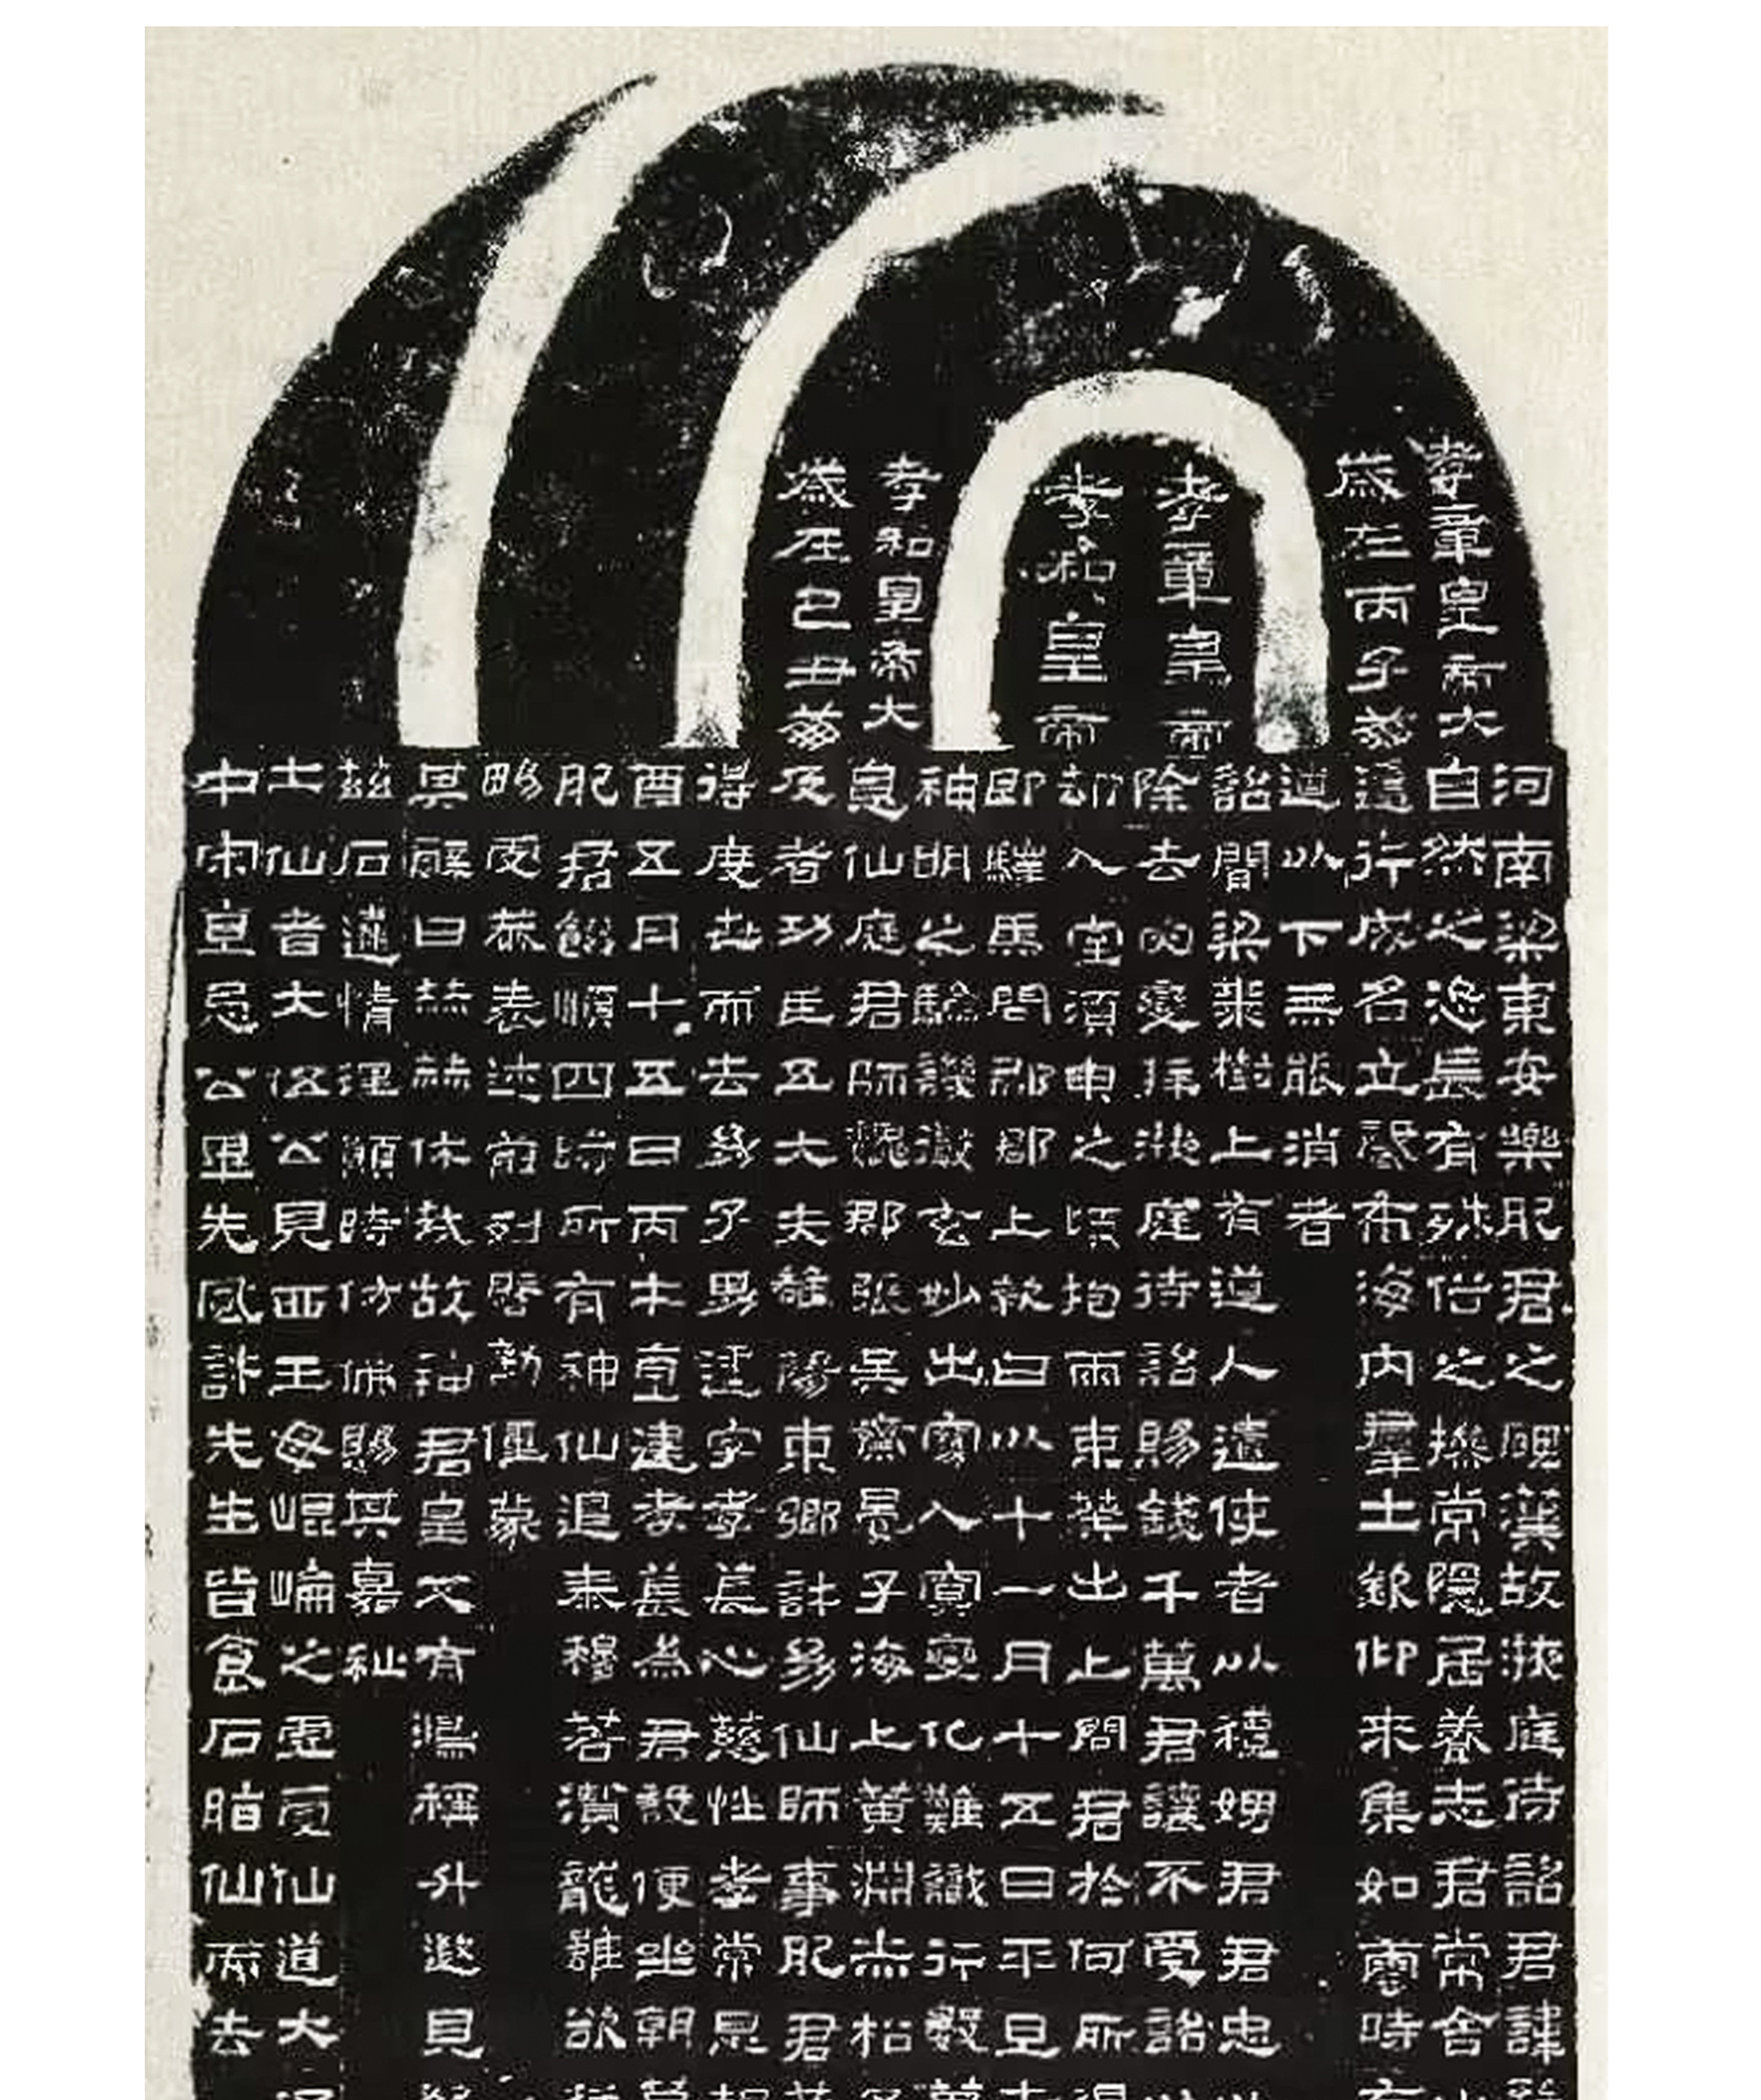 孝章皇帝
孝和皇帝
孝章皇帝大
歲在丙子崩
孝和皇帝大
歲在己丑崩
河南梁東安樂肥君之碑漢故掖庭待詔君諱
自然之恣長有殊俗之操常隱居養志君常舍
這行成名立聲布海内群士欽仰來集如雲時
道以下無能消者
詔聞梁棗樹上有道人遣使者以禮娉君君忠
除去灾變拜掖庭待詔賜錢千萬君讓不受詔
却入室須臾之頃抱兩束葵出上問君於何所
即驛馬問郡郡上報曰以十一月十五日平旦
神明之驗譏徹玄妙出窈入冥變化難識行數
息仙庭君師魏郡張吳齋晏子海上黄淵赤松
及者功臣五大夫雒陽東鄉許幼仙師事肥君
得度世而去幼子男建字孝萇心慈性孝常思
酉五月十五日丙午直建孝萇為君設便坐朝
肥君餚順四時所有神仙退泰穆若潰龍雖欲
略受恭表述前列啓勸僮蒙
其辭曰赫赫休哉故神君皇又有鴻稱升遐見
兹石遺情理願時仿佛賜其嘉祉
土仙者大伍公見西王母崐崘之虛受仙道大
中宋直忌公畢先風許先生皆食石脂仙而去